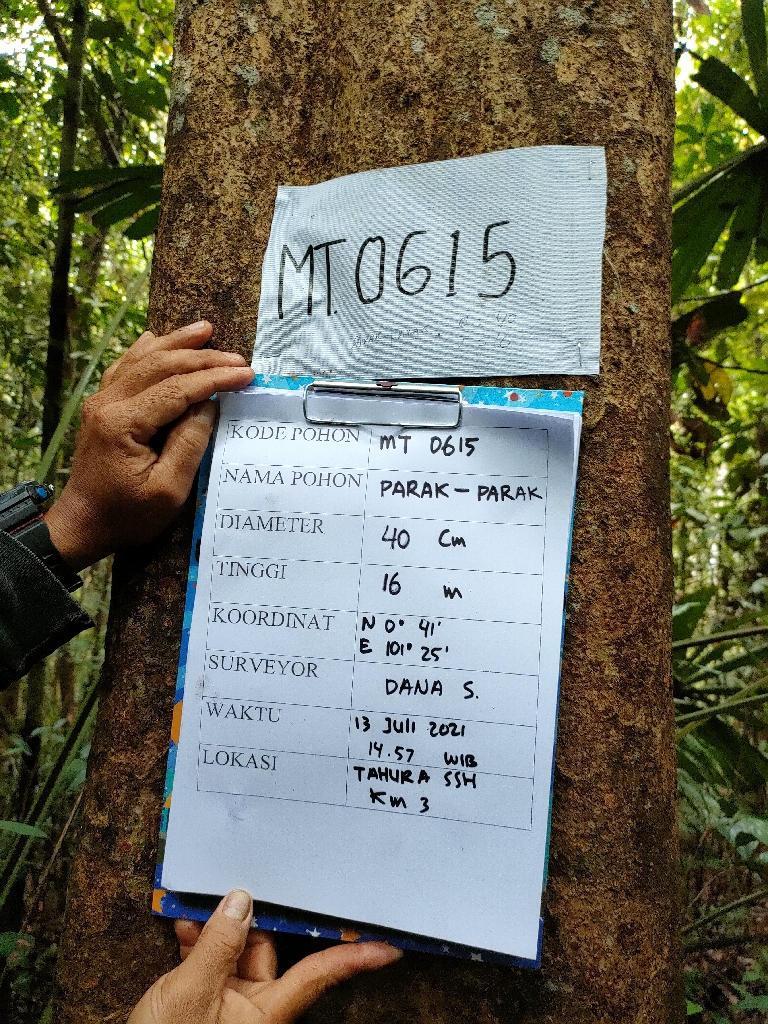 MT.0615
KODE POHON MT 0615
NAMA POHON PARAK - PARAK
DIAMETER 40 Cm
TINGGI 16 m
KOORDINAT N 0° 41'
E 101° 25'
SURVEYOR DANA S.
WAKTU 13 Juli 2021
14.57 WIB
LOKASI TAHURA SSH
Km 3